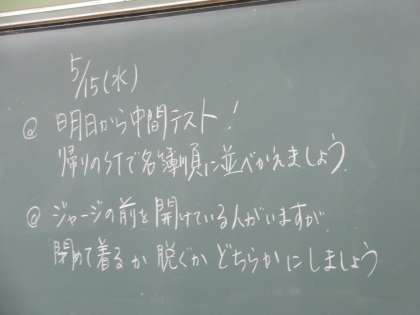 5/15(水)
@ 明日から中間テスト!
帰りのSTで名簿順に並べかえましょう.
@ ジャージの前を開けている人がいますが
閉めて着るか脱ぐかどちらかにしましょう